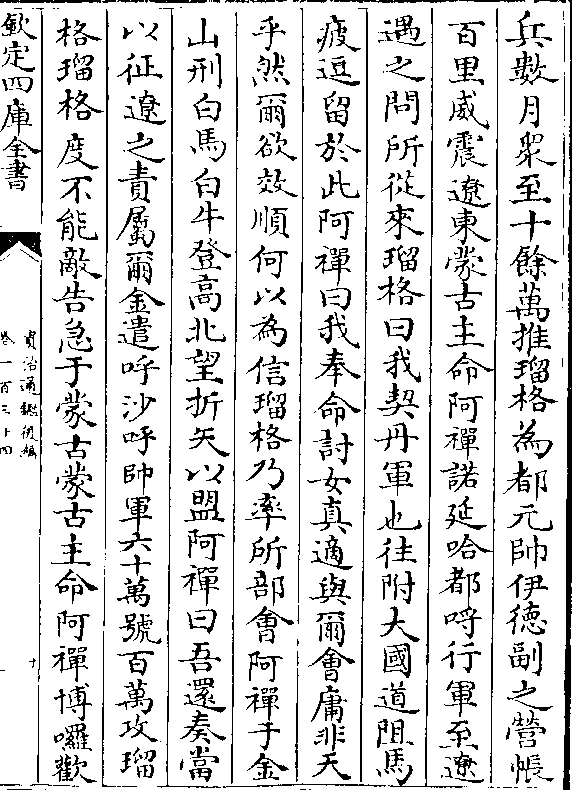 兵數月衆至十餘萬推瑠格為都元帥伊德副之營帳
百里威震遼東蒙古主命阿禪諾延哈都呼行軍至遼
遇之問所從來瑠格曰我契丹軍也往附大國道阻馬
疲逗留於此阿禪曰我奉命討女真適與爾會庸非天
乎然爾欲效順何以為信瑠格乃率所部會阿禪于金
山刑白馬白牛登高北望折矢以盟阿禪曰吾還奏當
以征遼之責屬爾金遣呼沙呼帥軍六十萬號百萬攻瑠
格瑠格度不能敵告急于蒙古蒙古主命阿禪博囉歡
欽定四庫全書
資治通鑑後編
卷一百三十四
十